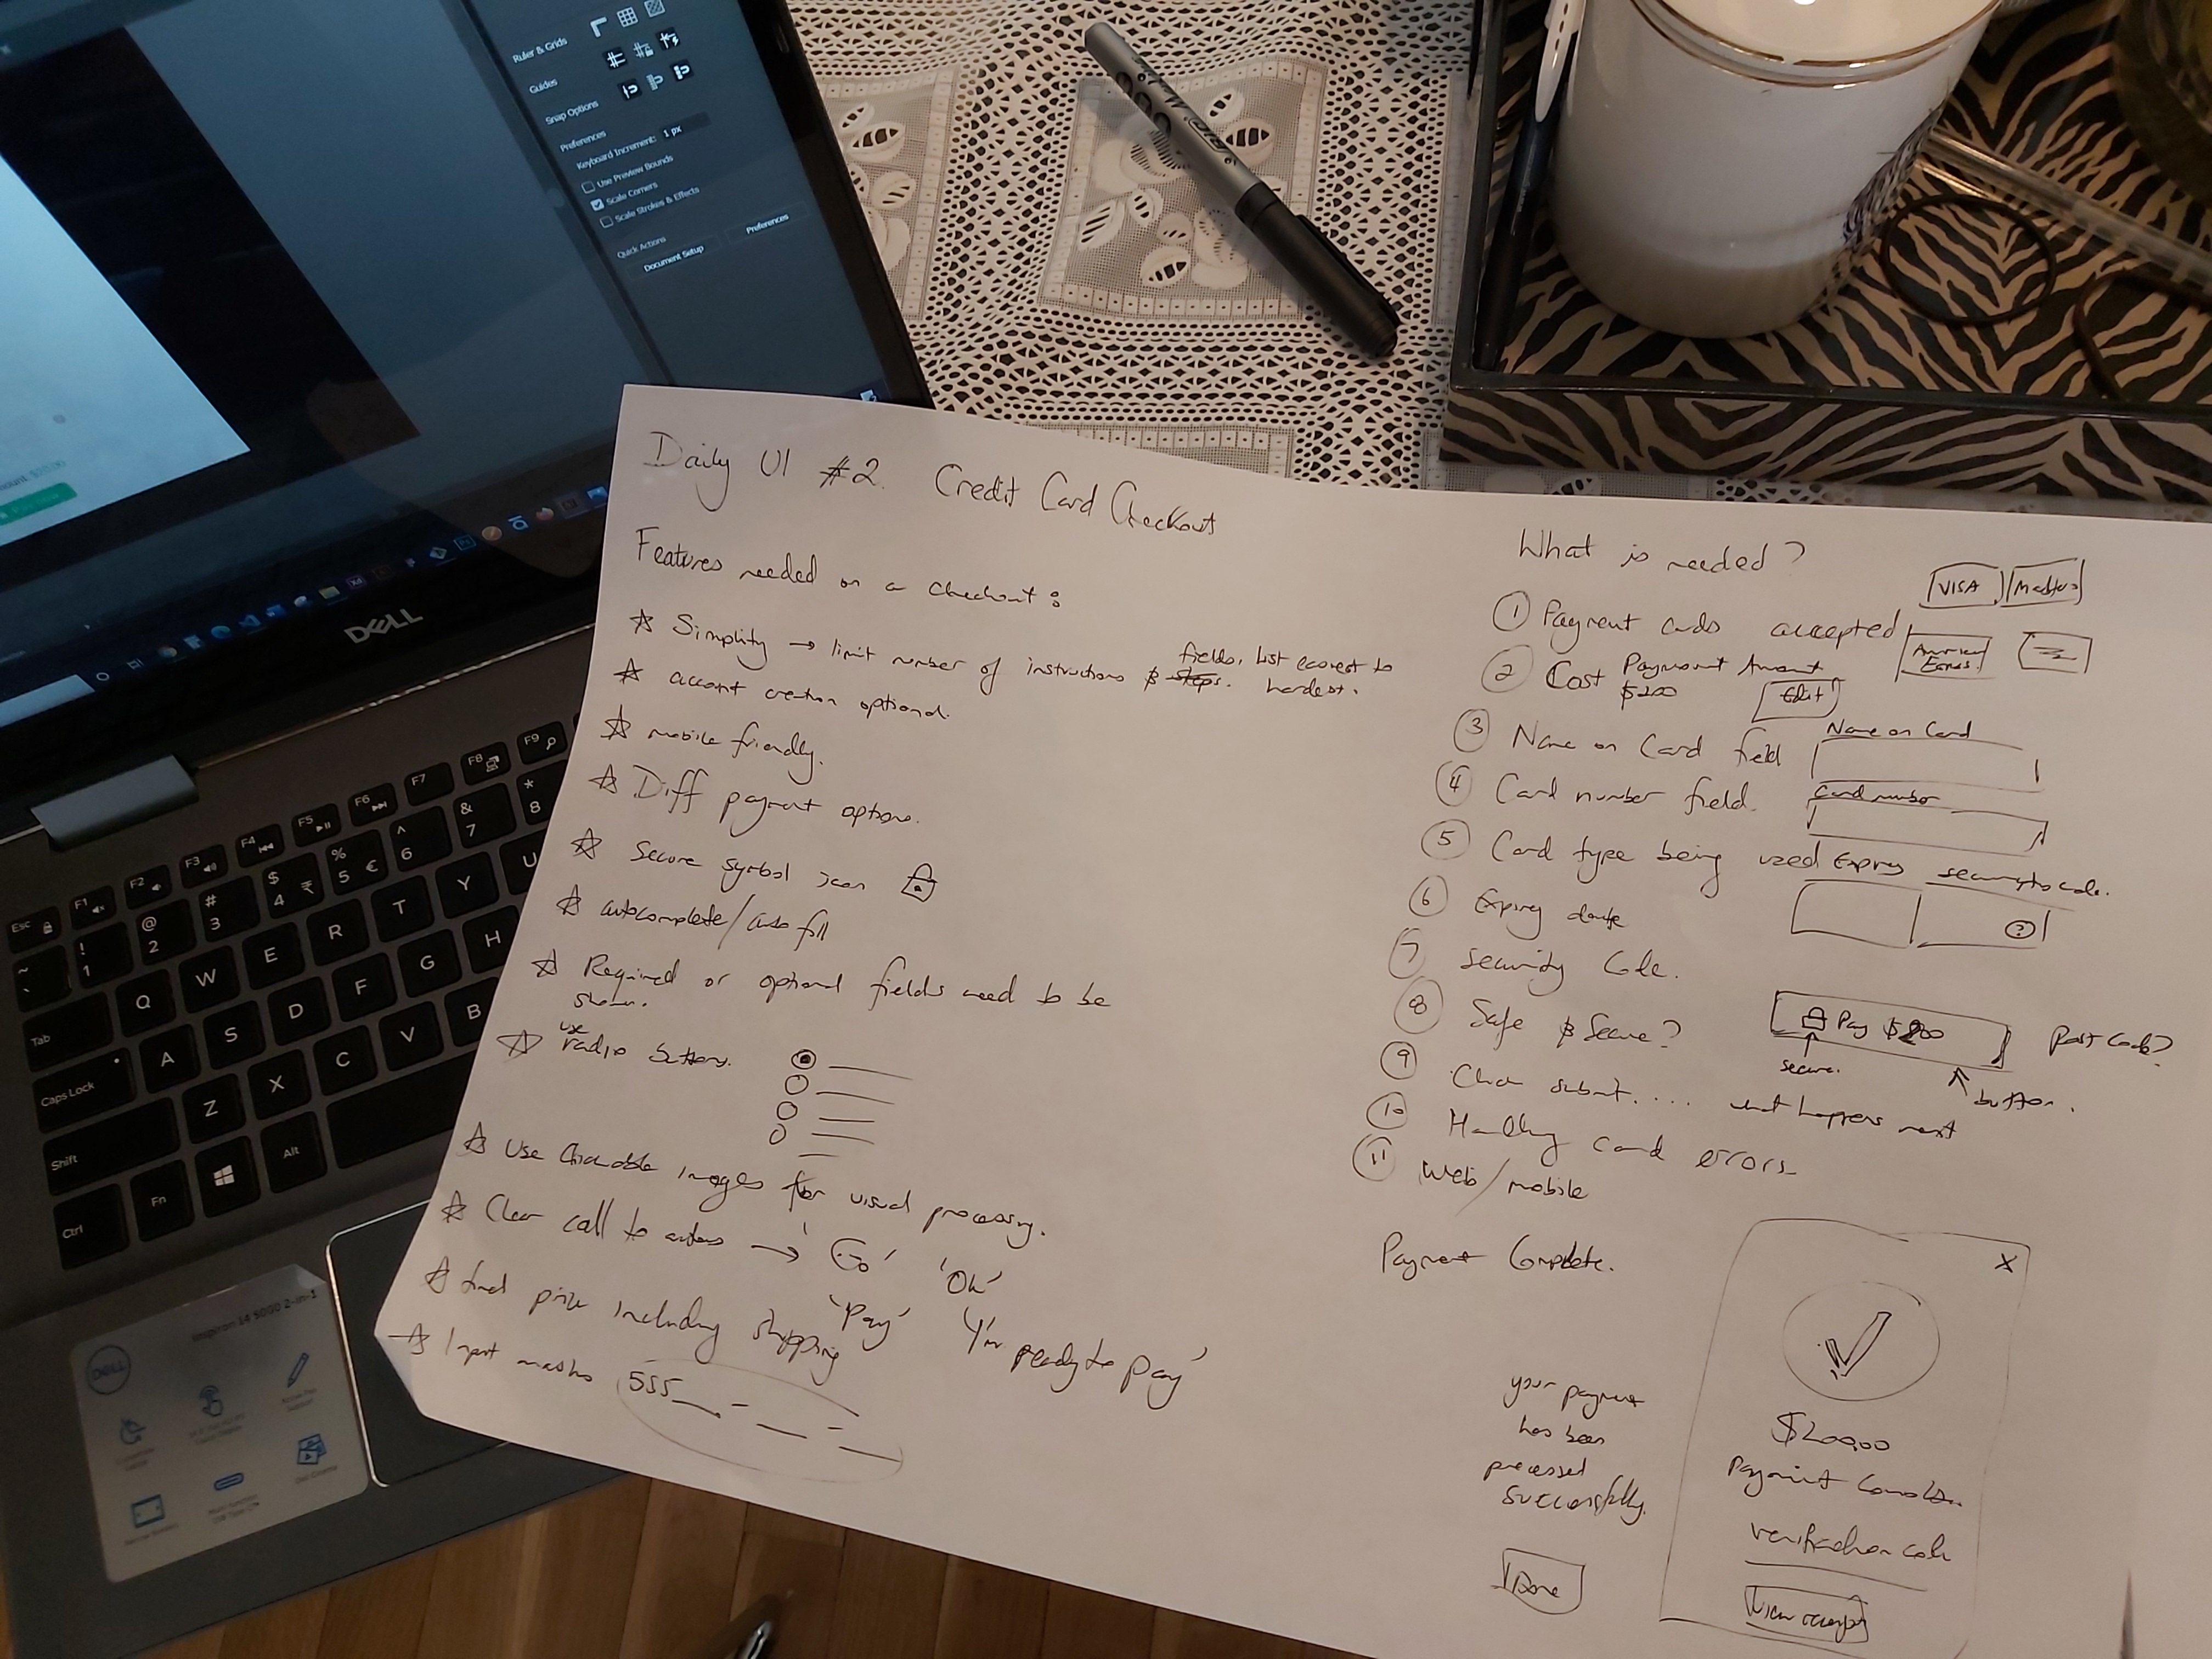 Ruler & Grids
Guides
Snap Options
Preferences
Keyboard Increment: 1 px
Use Preview Bounds
Scale Corners
Scale Strokes & Effects
Quick Actions
Document Setup
Preferences
DELL
Esc
F1
F2
F3
F4
F5
F6
F7
F8
F9
~
`
! 1
@ 2
# 3
$ 4 ₹
% 5 €
^ 6
& 7
* 8
Tab
Q W E R T Y U
Caps Lock
A S D F G H
Shift
Z X C V B
Ctrl
Fn
Alt
DELL
Inspiron 14 5000 2-in-1
Daily UI #2. Credit Card Checkout
Features needed on a checkout:
Simplify → limit number of instructions & fields. List easiest to
hardest.
account creation optional.
mobile friendly.
Diff payment options.
Secure symbol icon
autocomplete/auto fill
Required or optional fields need to be
shown.
use
radio buttons.
Use clickable images for visual processing.
Clear call to actions → 'Go' 'Ok'
'Pay' 'I'm ready to pay'
final price including shipping
Input masks 555
What is needed?
1 Payment cards accepted
VISA
2 Cost Payment Amount
$200 Edit
3 Name on Card field
Name on Card
4 Card number field.
Card number
5 Card type being used
Expiry security code.
6 Expiry date
?
7 Security Code.
8 Safe & Secure?
Pay $200
Post Code?
secure.
button.
9 Click submit.... what happens next
10 Handling card errors
11 Web/mobile
Payment Complete.
X
your payment
has been
processed
successfully.
Done
$200.00
Payment
verification code
View receipt